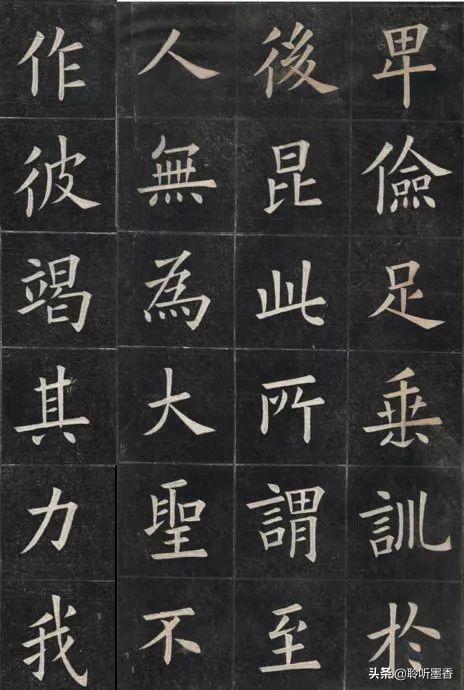 卑儉足垂訓於
後昆此所謂至
人無為大聖不
作彼竭其力我
头条@聆听墨香